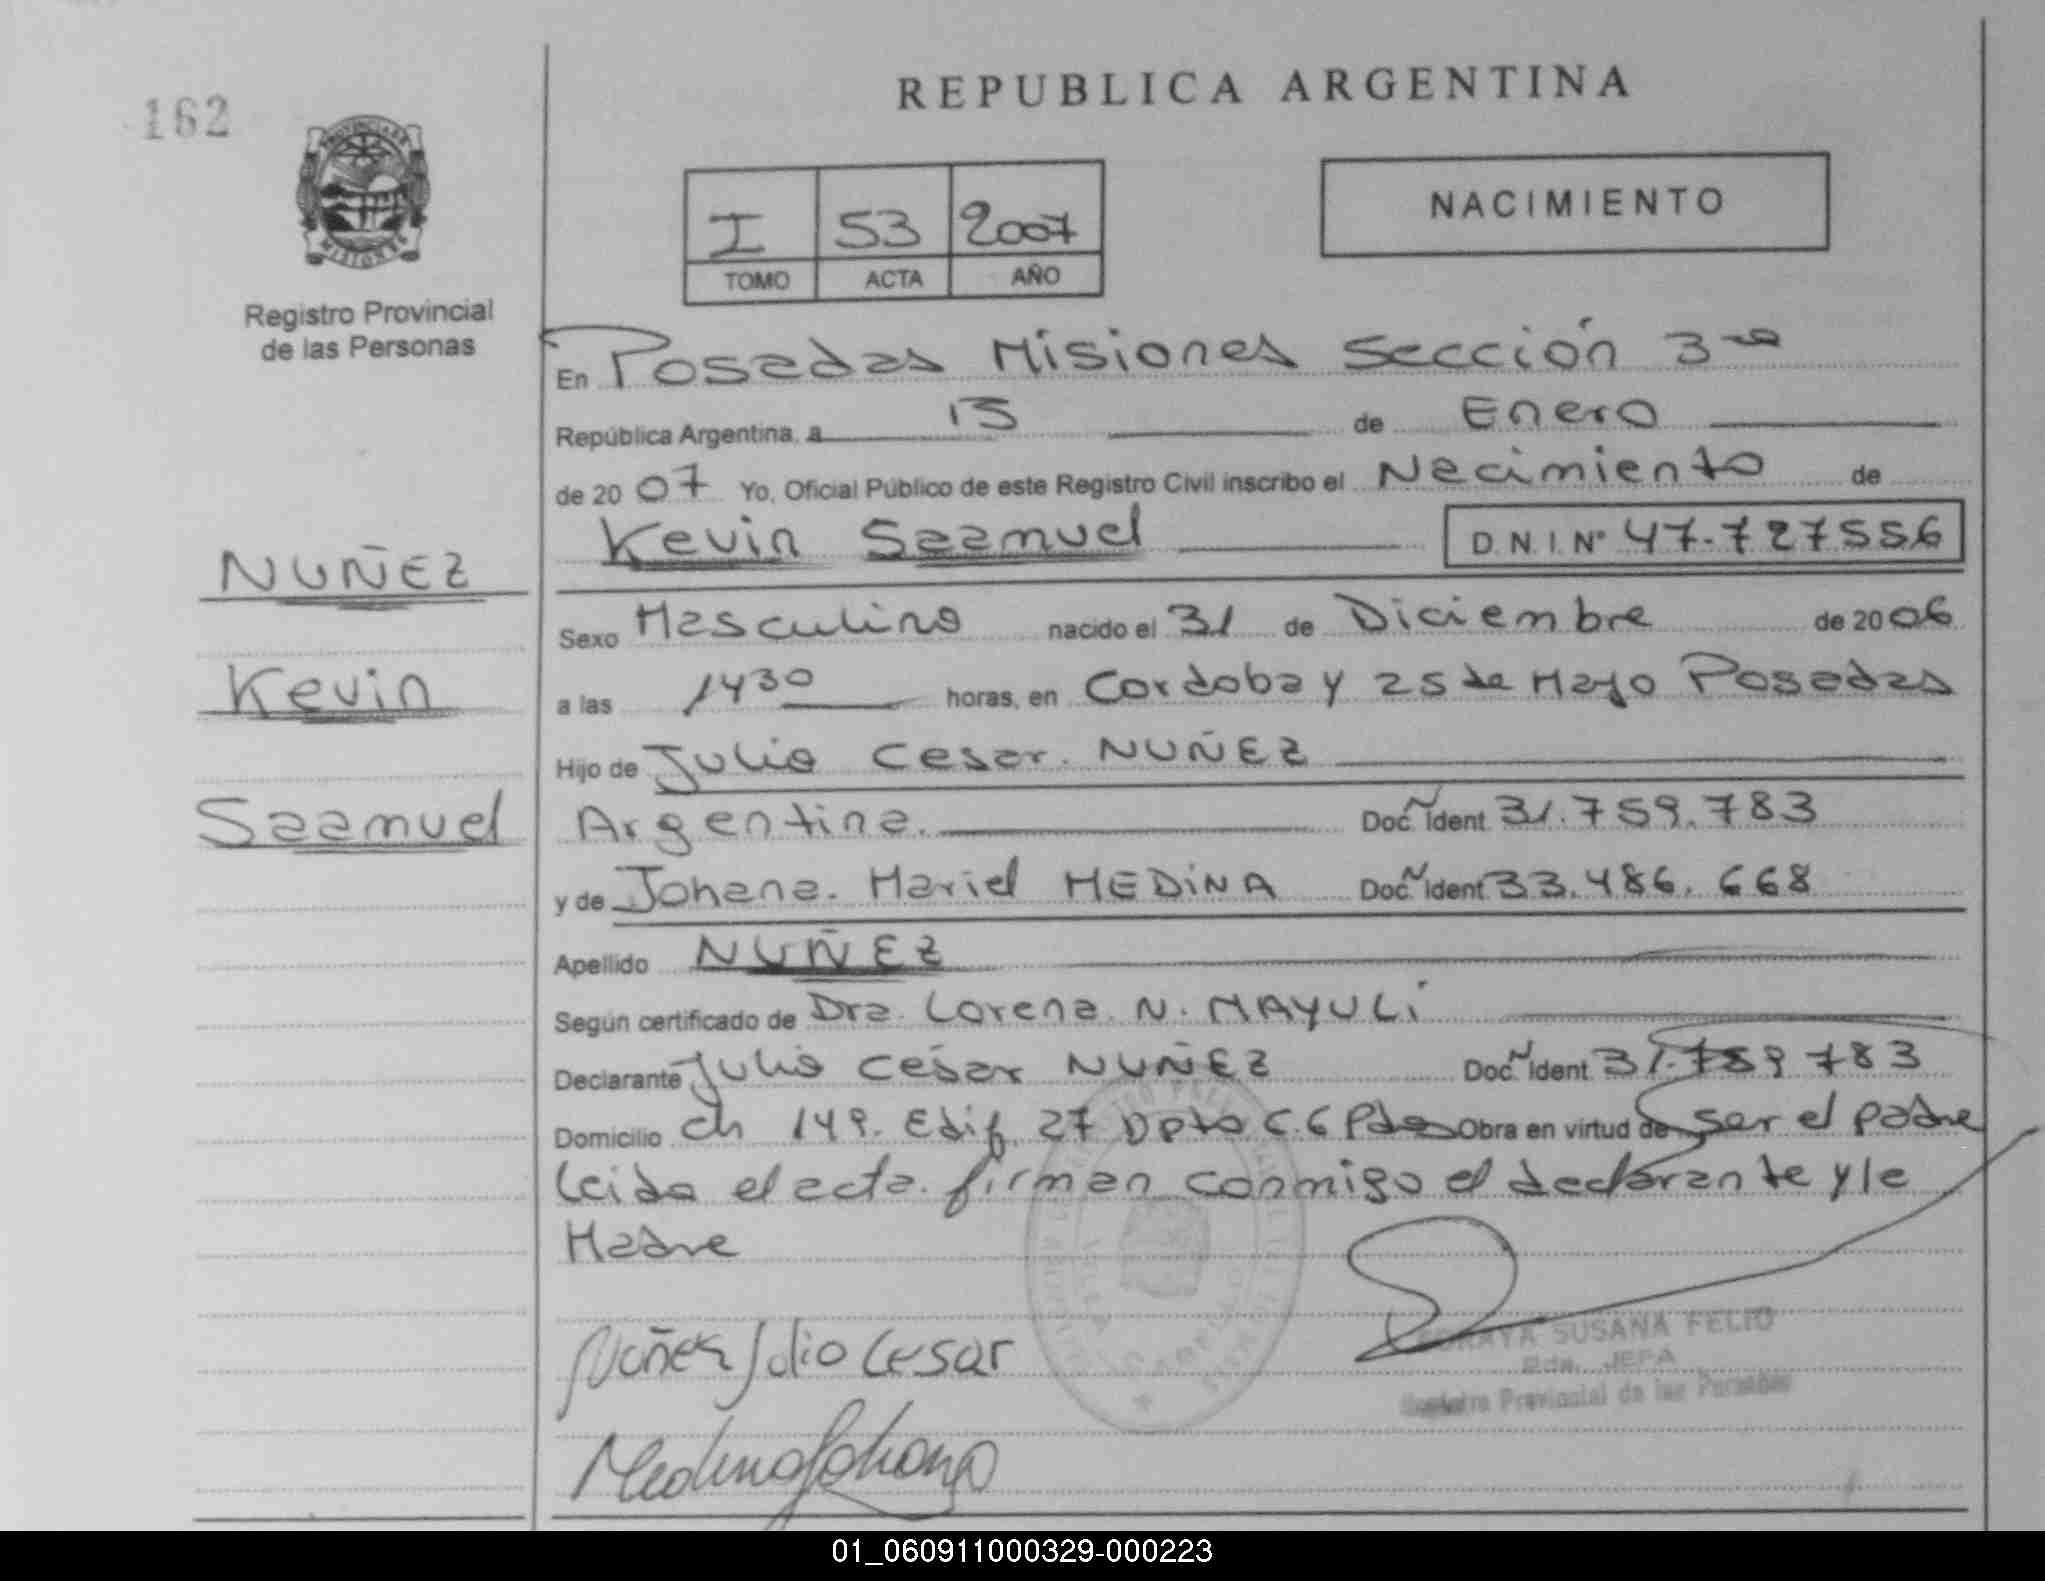 REPUBLICA ARGENTINA
162
PROVINCIA DE
MISIONES
Registro Provincial
de las Personas
I 53 2007
TOMO ACTA AÑO
NACIMIENTO
En Posadas Misiones Sección 3ra
República Argentina, a 15 de Enero
de 2007 Yo, Oficial Público de este Registro Civil inscribo el Nacimiento de
Kevin Saamuel D.N.I. Nº 47.727556
NUÑEZ
Kevin
Saamuel
Sexo Masculino nacido el 31 de Diciembre de 2006
a las 1430 horas, en Cordoba y 25 de Mayo Posadas
Hijo de Julio Cesar. NUÑEZ
Argentina. Doc. Ident 31.759.783
y de Johana. Mariel MEDINA Doc. Ident 33.486.668
Apellido NUÑEZ
Según certificado de Dra. Lorena N. MAYULI
Declarante Julio César NUÑEZ Doc. Ident 31.759 783
Domicilio Ch 149. Edif 27 Dpto C.6 Pdas Obra en virtud de ser el padre
leida el acta. firman conmigo el declarante y la
Madre
Nuñez Julio Cesar
Medina Johana
SORAYA SUSANA FELIO
JEFA
Registro Provincial de las Personas
01_060911000329-000223